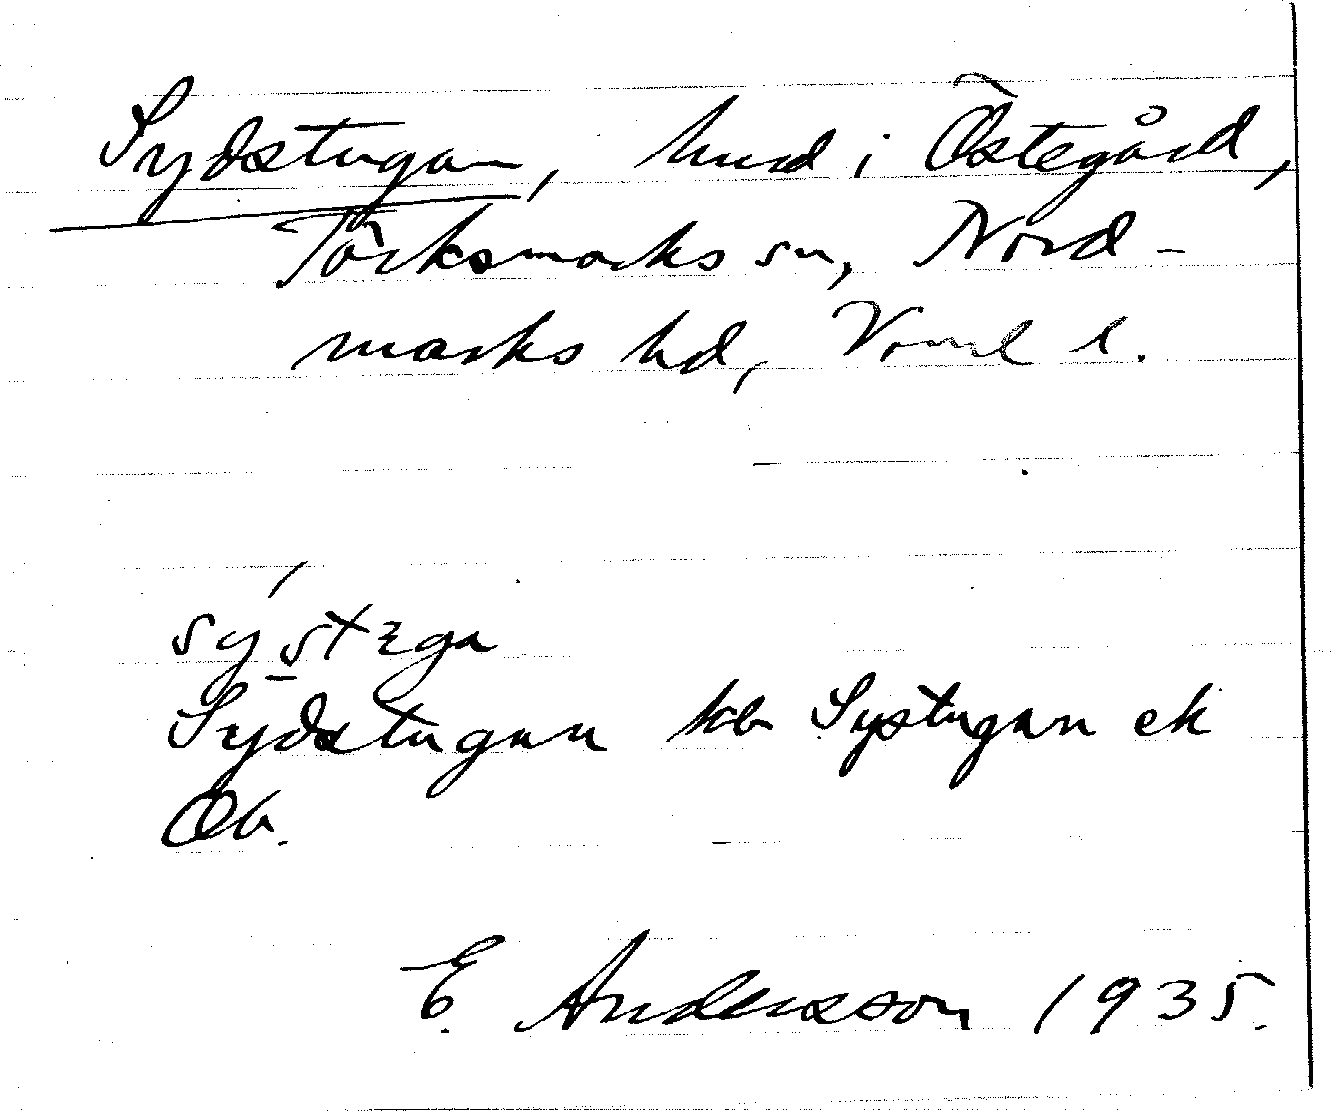 Sydstugan, hmd i Östegård,
Töcksmarks sn, Nord-
marks hd, Vrml l.
sýstɜga
Sydstugan kb Systugan ek
Ob.
E. Andersson 1935.